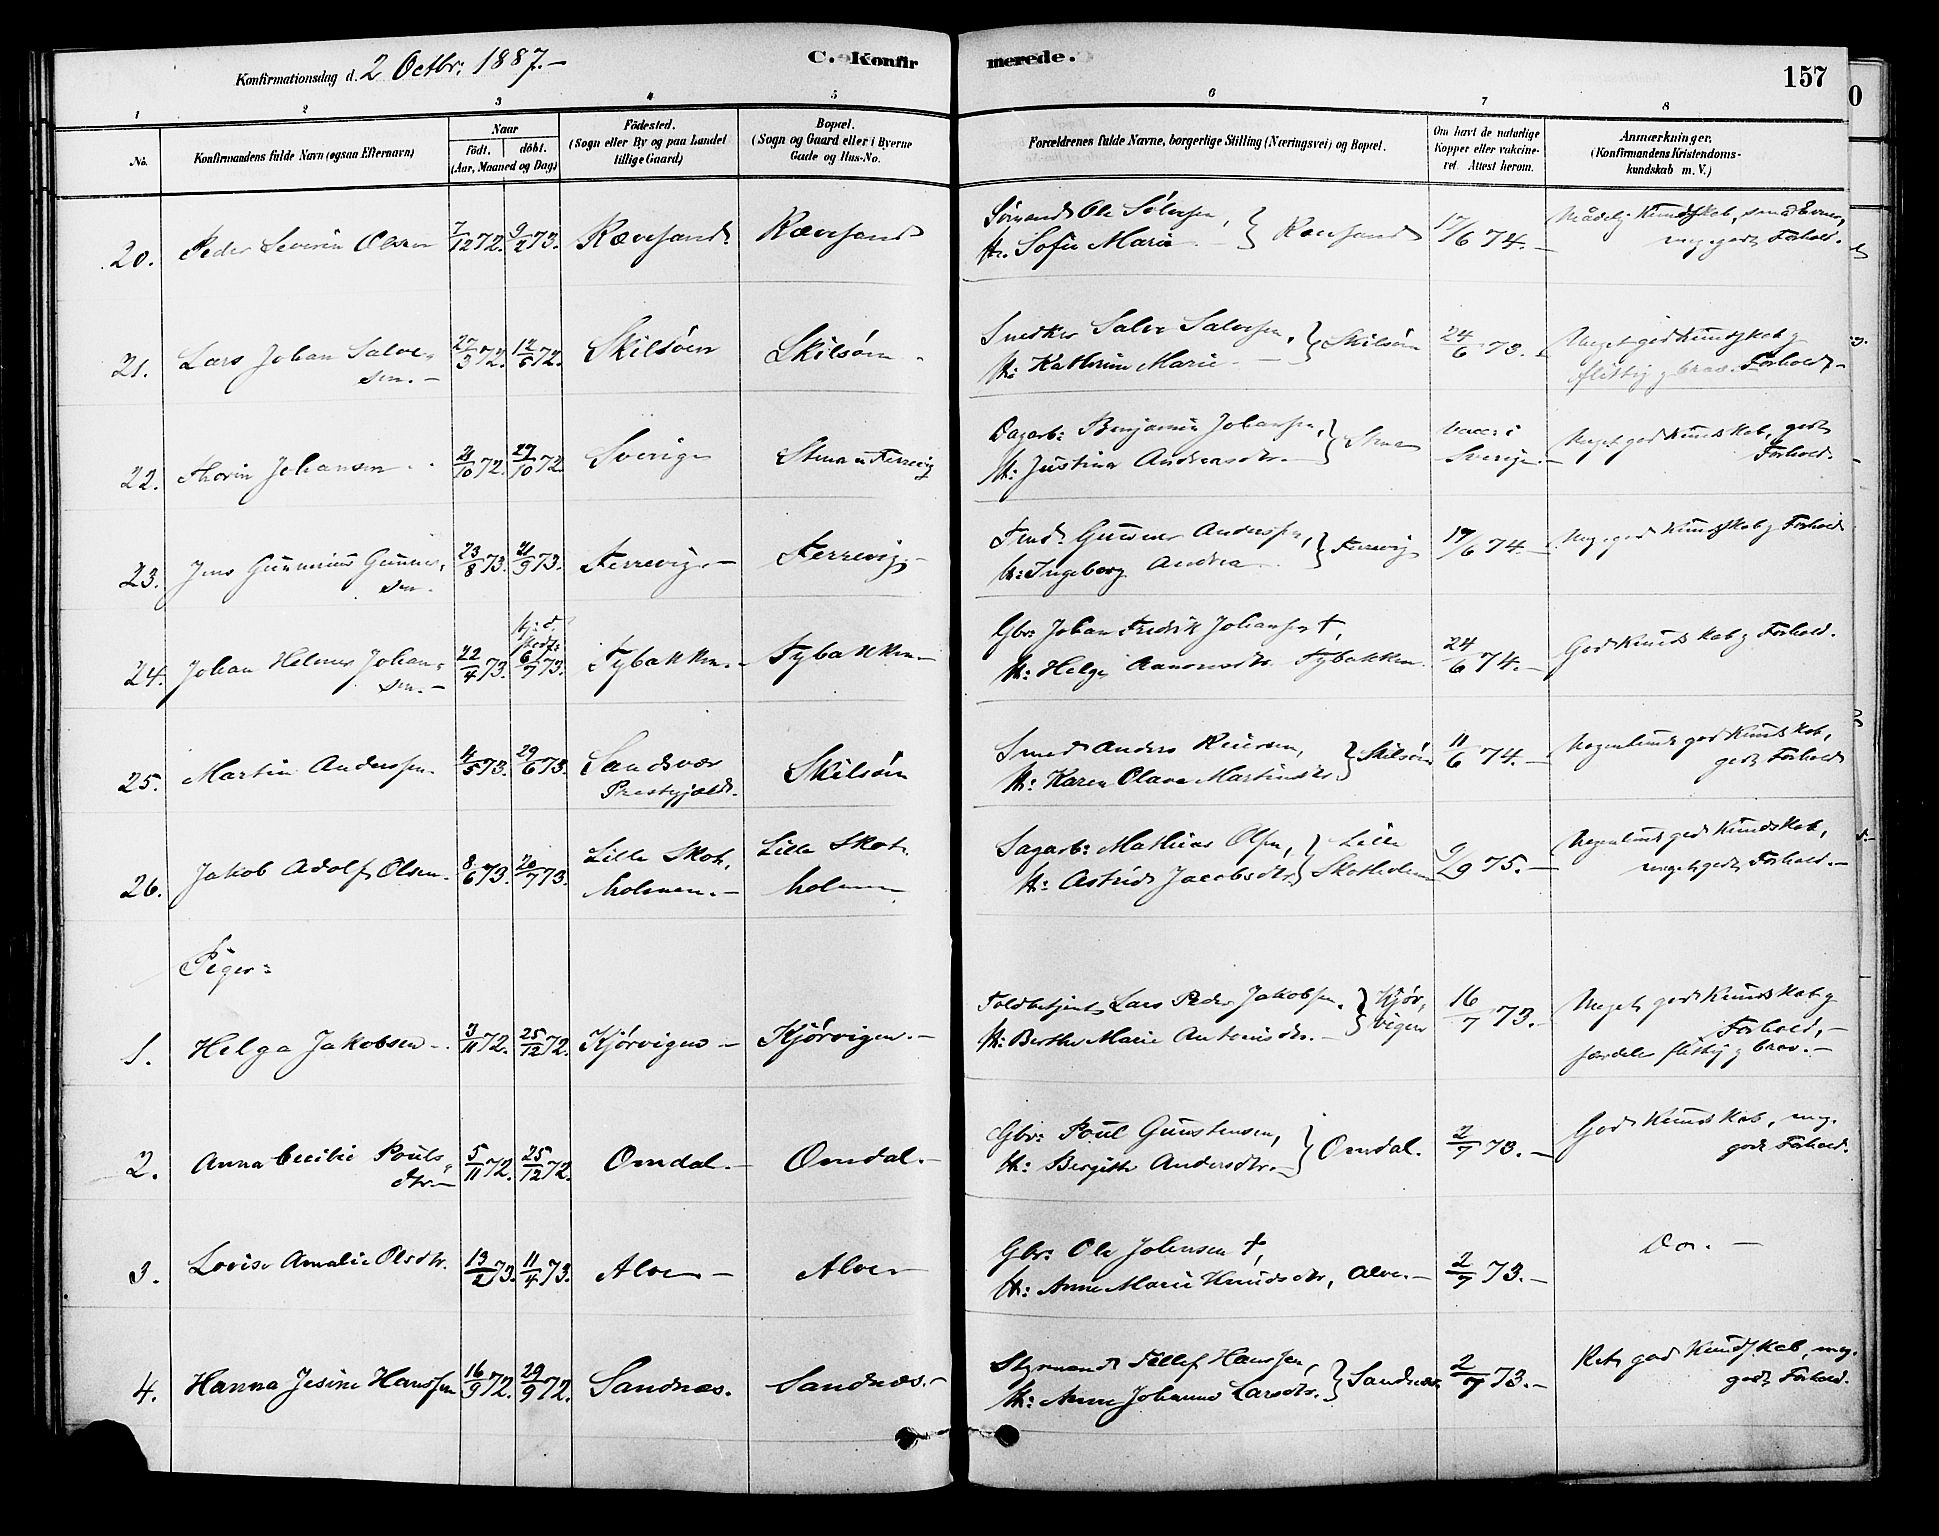 Konfirmationsdag d. 2 Octbr: 1887.-
C. Konfir merede.
157
1 2 3 4 5 6 7 8
No. Konfirmandens fulde Navn (ogsaa Efternavn) Naar födt. döbt. (Aar, Maaned og Dag) Födested. (Sogn eller By og paa Landet tillige Gaard) Bopæl. (Sogn og Gaard eller i Byerne Gade og Hus-No. Forældrenes fulde Navne, borgerlige Stilling (Næringsvei) og Bopæl. Om havt de naturlige Kopper eller vakcineret. Attest herom. Anmærkninger. (Konfirmandens Kristendomskundskab m. V.)
20. Peder Severin Olsen 7/12 72. 9/2 73. Rævesand. Rævesand
Sømand Ole
H: Sofie Marie } Rævesand 17/6 74.- Mådelig Kundskab, små Evner,
meg. godt Forhold.
21. Lars Johan Salve- 27/3 72. 12/5 72. Skilsøen Skilsøen
sen.-
Snedker Salve Salvesen,
H: Kathrine Marie - } Skilsøen 24/6 73. Meget god Kundskab og
flittig g brav. Forhold,-
22. Thorin Johansen 2/10 72. 27/10 72 Sverige Stena Færrevig
Dagarb: Benjamin Johansen,
H: Justina Andreasdtr.- } Stena vacc: i
Sverige.- Meget god Kundskab, godt
Forhold.
23. Jens Gunnerius Gunner- 23/8 73. 21/9 73. Færrevig.- Færrevig.-
sen.-
Gunner Anderssen,
H: Ingeborg Andrea } Færrevig 17/6 74.- Meg. god Kundskab g Forhold
24. Johan Helmer Johan- 22/4 73. 6/7 73. Tybakken.- Tybakken.-
sen.-
Gbr: Johan Fredrik Johansen †,
H: Helge Aanonsdtr. Tybakken. 24/6 74.- God Kundskab g Forhold.
25. Martin Anderssen. 4/5 73. 29/6 73. Sandsvær Skilsøen
Prestegjæld.
Smed Anders
H: Karen Olava Martinsdtr } Skilsøen 11/6 74.- Nogenlunde god Kundskab,
godt Forhold
26. Jakob Adolf Olsen. 8/6 73. 20/7 73. Lille Skot- Lille Skot-
holmen.- holmen
Sagarb: Mathias Olsen,
H: Astrid Jacobsdtr } Lille
Skotholmen 9/29 75.- Nogenlunde god Kundskab,
meget godt Forhold.-
Piger:
1. Helga Jakobsen-. 3/11 72. 25/12 72. Kjørvigen- Kjørvigen.-
Toldbetjent Lars Peder Jakobsen.
H: Berthe Marie Antonisdtr.- } Kjør-
vigen 16/7 73.- Meget god Kundskab g
Forhold,-
særdeles flittig g brav.-
2. Anna Cecilie Pouls- 5/11 72. 25/12 72. Omdal.- Omdal.-
dtr.-
Gbr: Poul Gunstensen,
H: Bergithe Andersdtr.- } Omdal. 2/7 73.- God Kundskab, meg.
godt Forhold.
3. Lovise Amalie Olsdtr. 13/2 73. 11/4 73. Alve- Alve-
Gbr: Ole Johnsen †,
H: Anne Marie Knudsdtr, Alve.- 2/7 73.- Do.-
4. Hanna Jesine Hanssen 16/9 72. 29/9 72. Sandnæs. Sandnæs.-
Styrmand Tellef Hanssen,
H: Anne Johanne Larsdtr. } Sandnæs. 2/7 73.- Ret god Kundskab, meg.
godt Forhold.